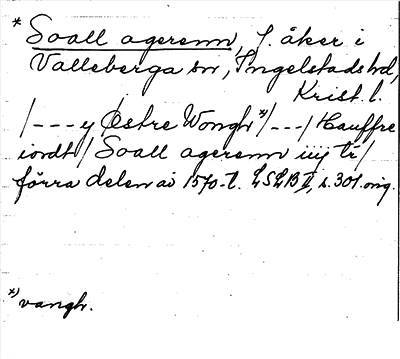 * Soall agerenn, f. åker i
Valleberga sn, Ingelstads hd,
Krist. l.
/---y Østre Wongh*)/---/ Hauffre
iordt/ Soall agerenn iiij tr/
förra delen av 1570-t. LSLB II, s. 301. orig.
*) vangh.